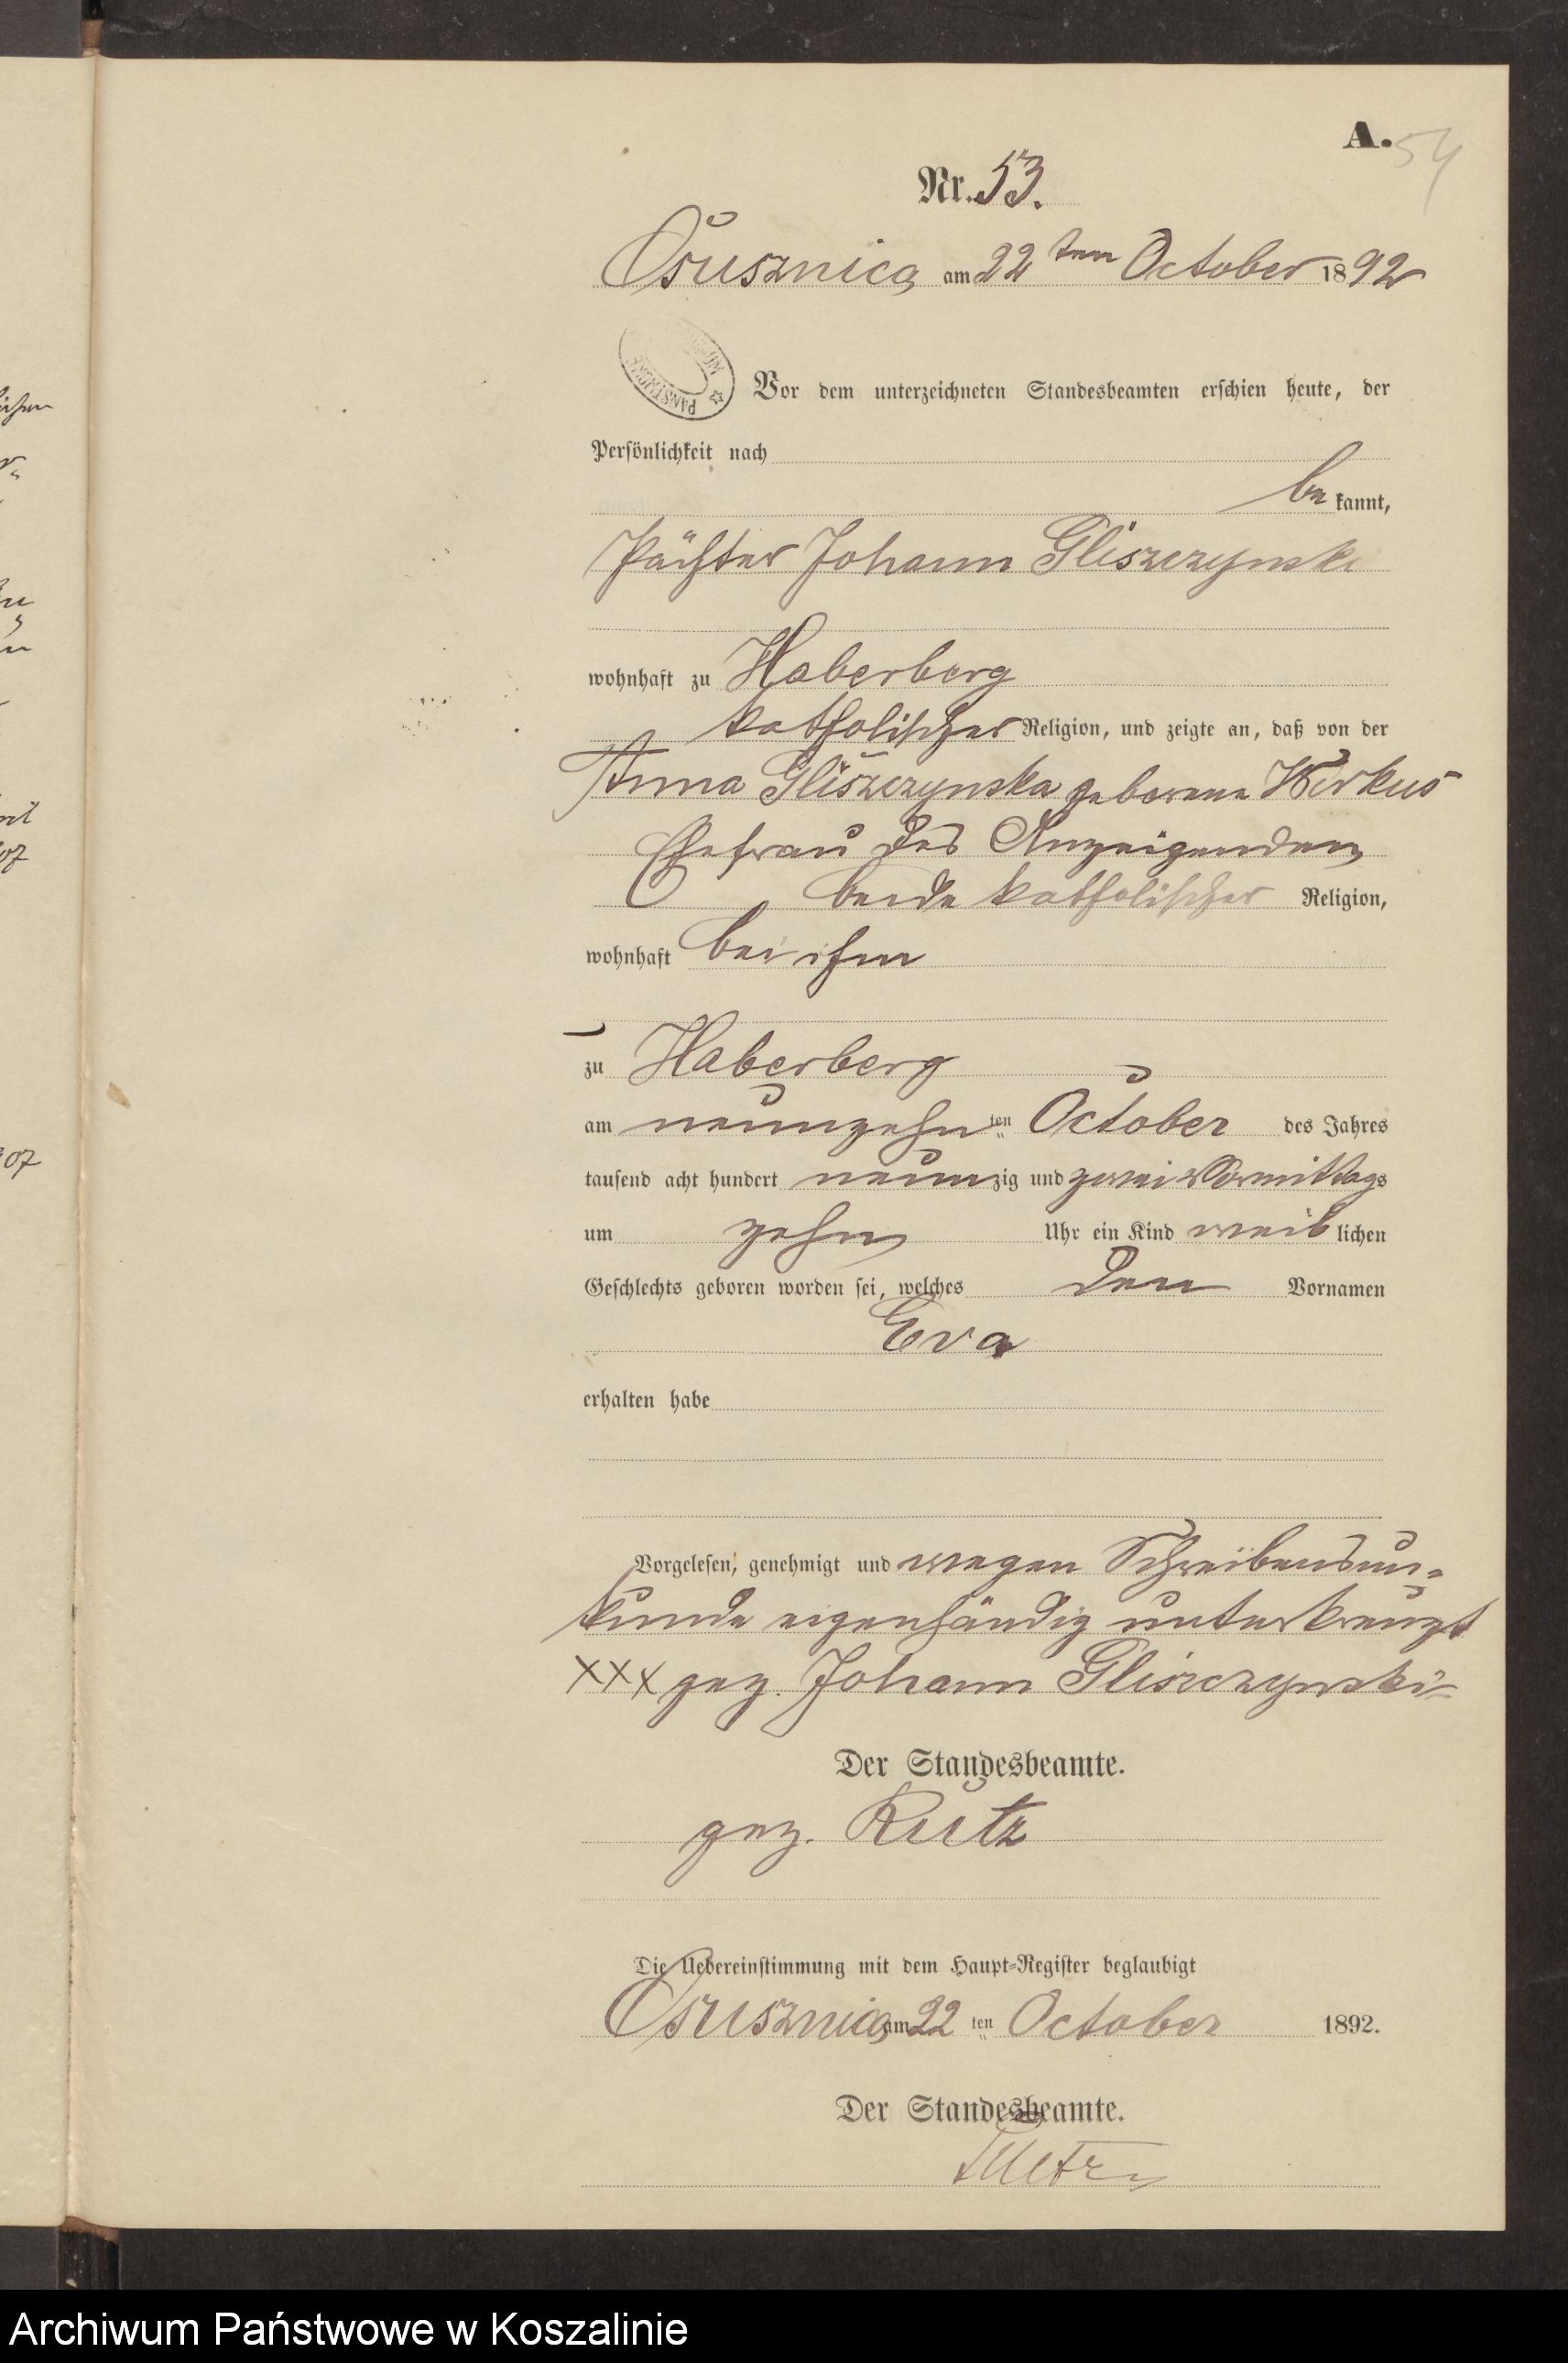 A. 54
Nr. 53.
Ossusznica am 22ten October 1892
PAŃSTWOWE
Vor dem unterzeichneten Standesbeamten erschien heute, der
Persönlichkeit nach
be kannt,
Pächter Johann Gliszczynski
wohnhaft zu Haberberg
katholischer Religion, und zeigte an, daß von der
Anna Gliszczynska geborene Wirkus
Ehefrau des Anzeigenden
beide katholischer Religion,
wohnhaft bei ihm
zu Haberberg
am neunzehn ten October des Jahres
tausend acht hundert neunzig und zwei Vormittags
um zehn Uhr ein Kind weiblichen
Geschlechts geboren worden sei, welches den Vornamen
Eva
erhalten habe
Vorgelesen, genehmigt und wegen Schreibensun-
kunde eigenhändig unterkreuzt
XXX gez. Johann Gliszczynski
Der Standesbeamte.
gez. Kutz
Die Uebereinstimmung mit dem Haupt-Register beglaubigt
Ossusznica am 22 ten October 1892.
Der Standesbeamte.
Archiwum Państwowe w Koszalinie